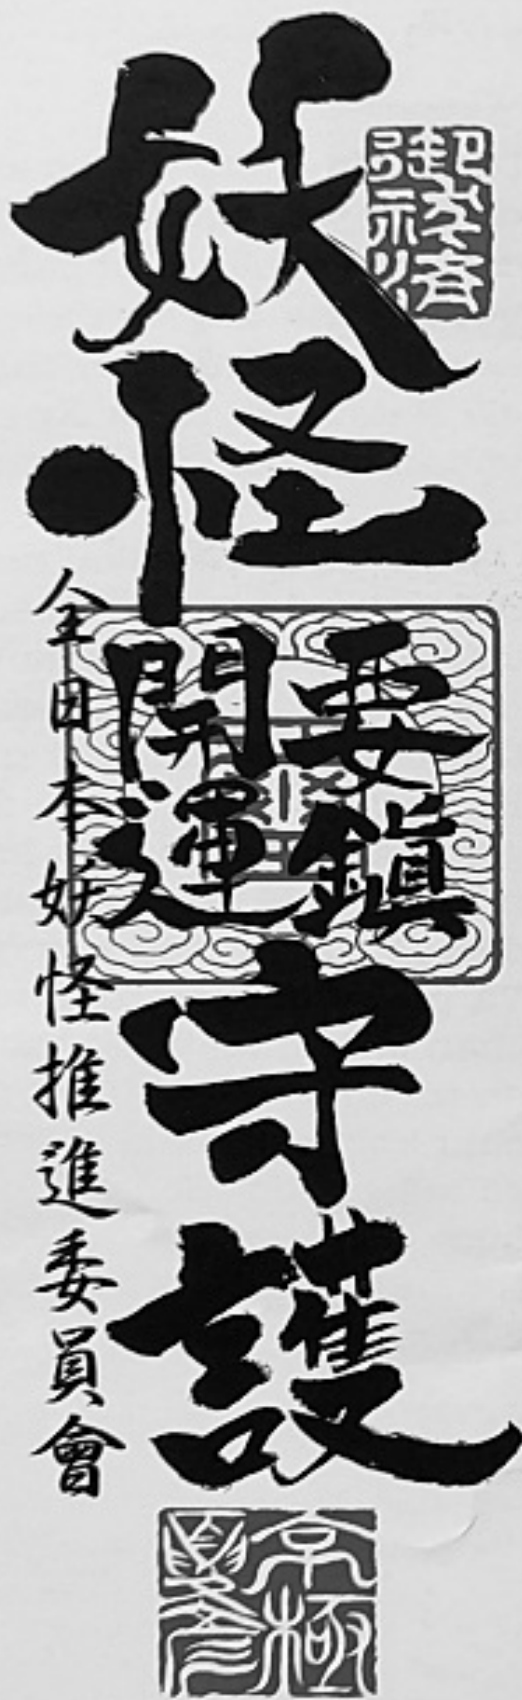 妖怪
要鎮
開運
守護
全日本妖怪推進委員會
京極
夏彦